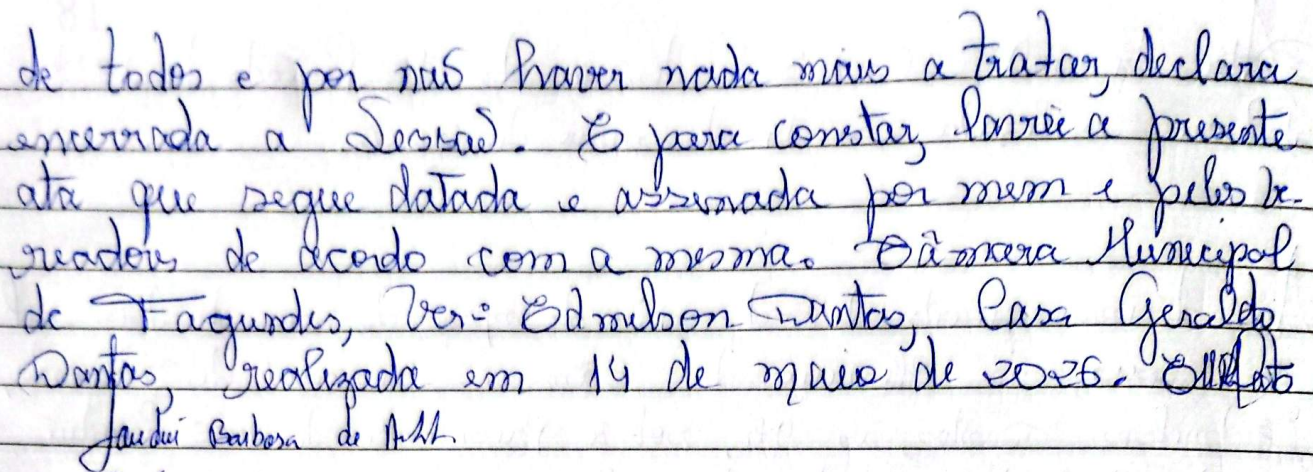 de todos e por não haver nada mais a tratar, declara
encerrada a Sessão. E para constar, lavrei a presente
ata que segue datada e assinada por mim e pelos ve-
readores de acordo com a mesma. Câmara Municipal
de Fagundes, Ver= Edmilson Dantas, Casa Geraldo
Dantas, realizada em 14 de maio de 2026.
Jaudui Barbosa de